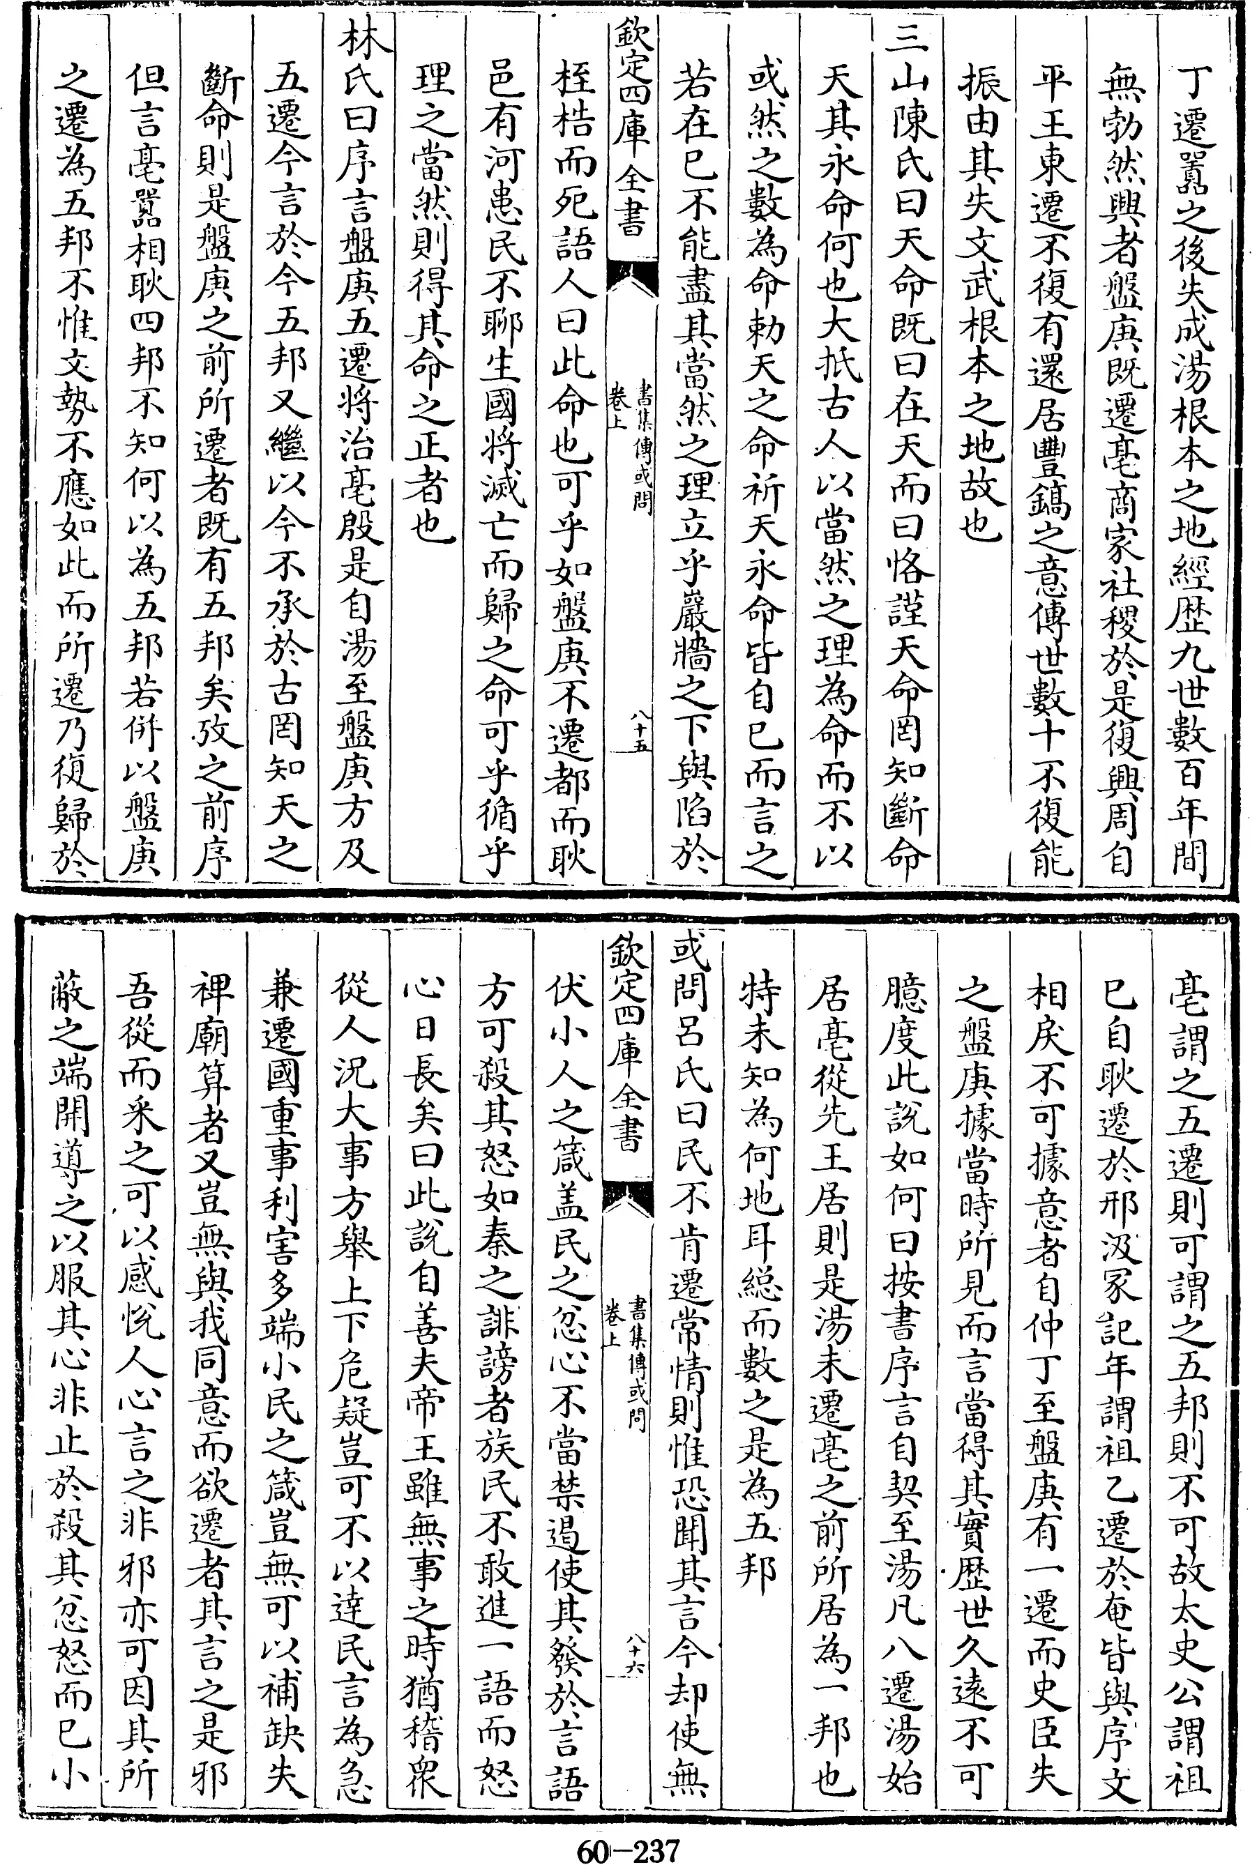 丁遷囂之後失成湯根本之地經歴九世數百年間
無勃然興者盤庚既遷亳商家社稷於是復興周自
平王東遷不復有還居豐鎬之意傳世數十不復能
振由其失文武根本之地故也
三山陳氏曰天命既曰在天而曰恪謹天命罔知斷命
天其永命何也大抵古人以當然之理為命而不以
或然之數為命勅天之命祈天永命皆自已而言之
若在已不能盡其當然之理立乎巖牆之下與陷於
欽定四庫全書
書集傳或問
卷上
八十五
桎梏而死語人曰此命也可乎如盤庚不遷都而耿
邑有河患民不聊生國將滅亡而歸之命可乎循乎
理之當然則得其命之正者也
林氏曰序言盤庚五遷將治亳殷是自湯至盤庚方及
五遷今言於今五邦又繼以今不承於古罔知天之
斷命則是盤庚之前所遷者既有五邦矣攷之前序
但言亳囂相耿四邦不知何以為五邦若併以盤庚
之遷為五邦不惟文勢不應如此而所遷乃復歸於
亳謂之五遷則可謂之五邦則不可故太史公謂祖
已自耿遷於邢汲冢記年謂祖乙遷於奄皆與序文
相戾不可據意者自仲丁至盤庚有一遷而史臣失
之盤庚據當時所見而言當得其實歴世久遠不可
臆度此說如何曰按書序言自契至湯凡八遷湯始
居亳從先王居則是湯未遷亳之前所居為一邦也
特未知為何地耳總而數之是為五邦
或問呂氏曰民不肯遷常情則惟恐聞其言今却使無
欽定四庫全書
書集傳或問
卷上
八十六
伏小人之箴盖民之忿心不當禁遏使其發於言語
方可殺其怒如秦之誹謗者族民不敢進一語而怒
心日長矣曰此說自善夫帝王雖無事之時猶稽衆
從人況大事方舉上下危疑豈可不以達民言為急
兼遷國重事利害多端小民之箴豈無可以補缺失
裨廟算者又豈無與我同意而欲遷者其言之是邪
吾從而采之可以感悦人心言之非邪亦可因其所
蔽之端開導之以服其心非止於殺其忿怒而已小
60-237